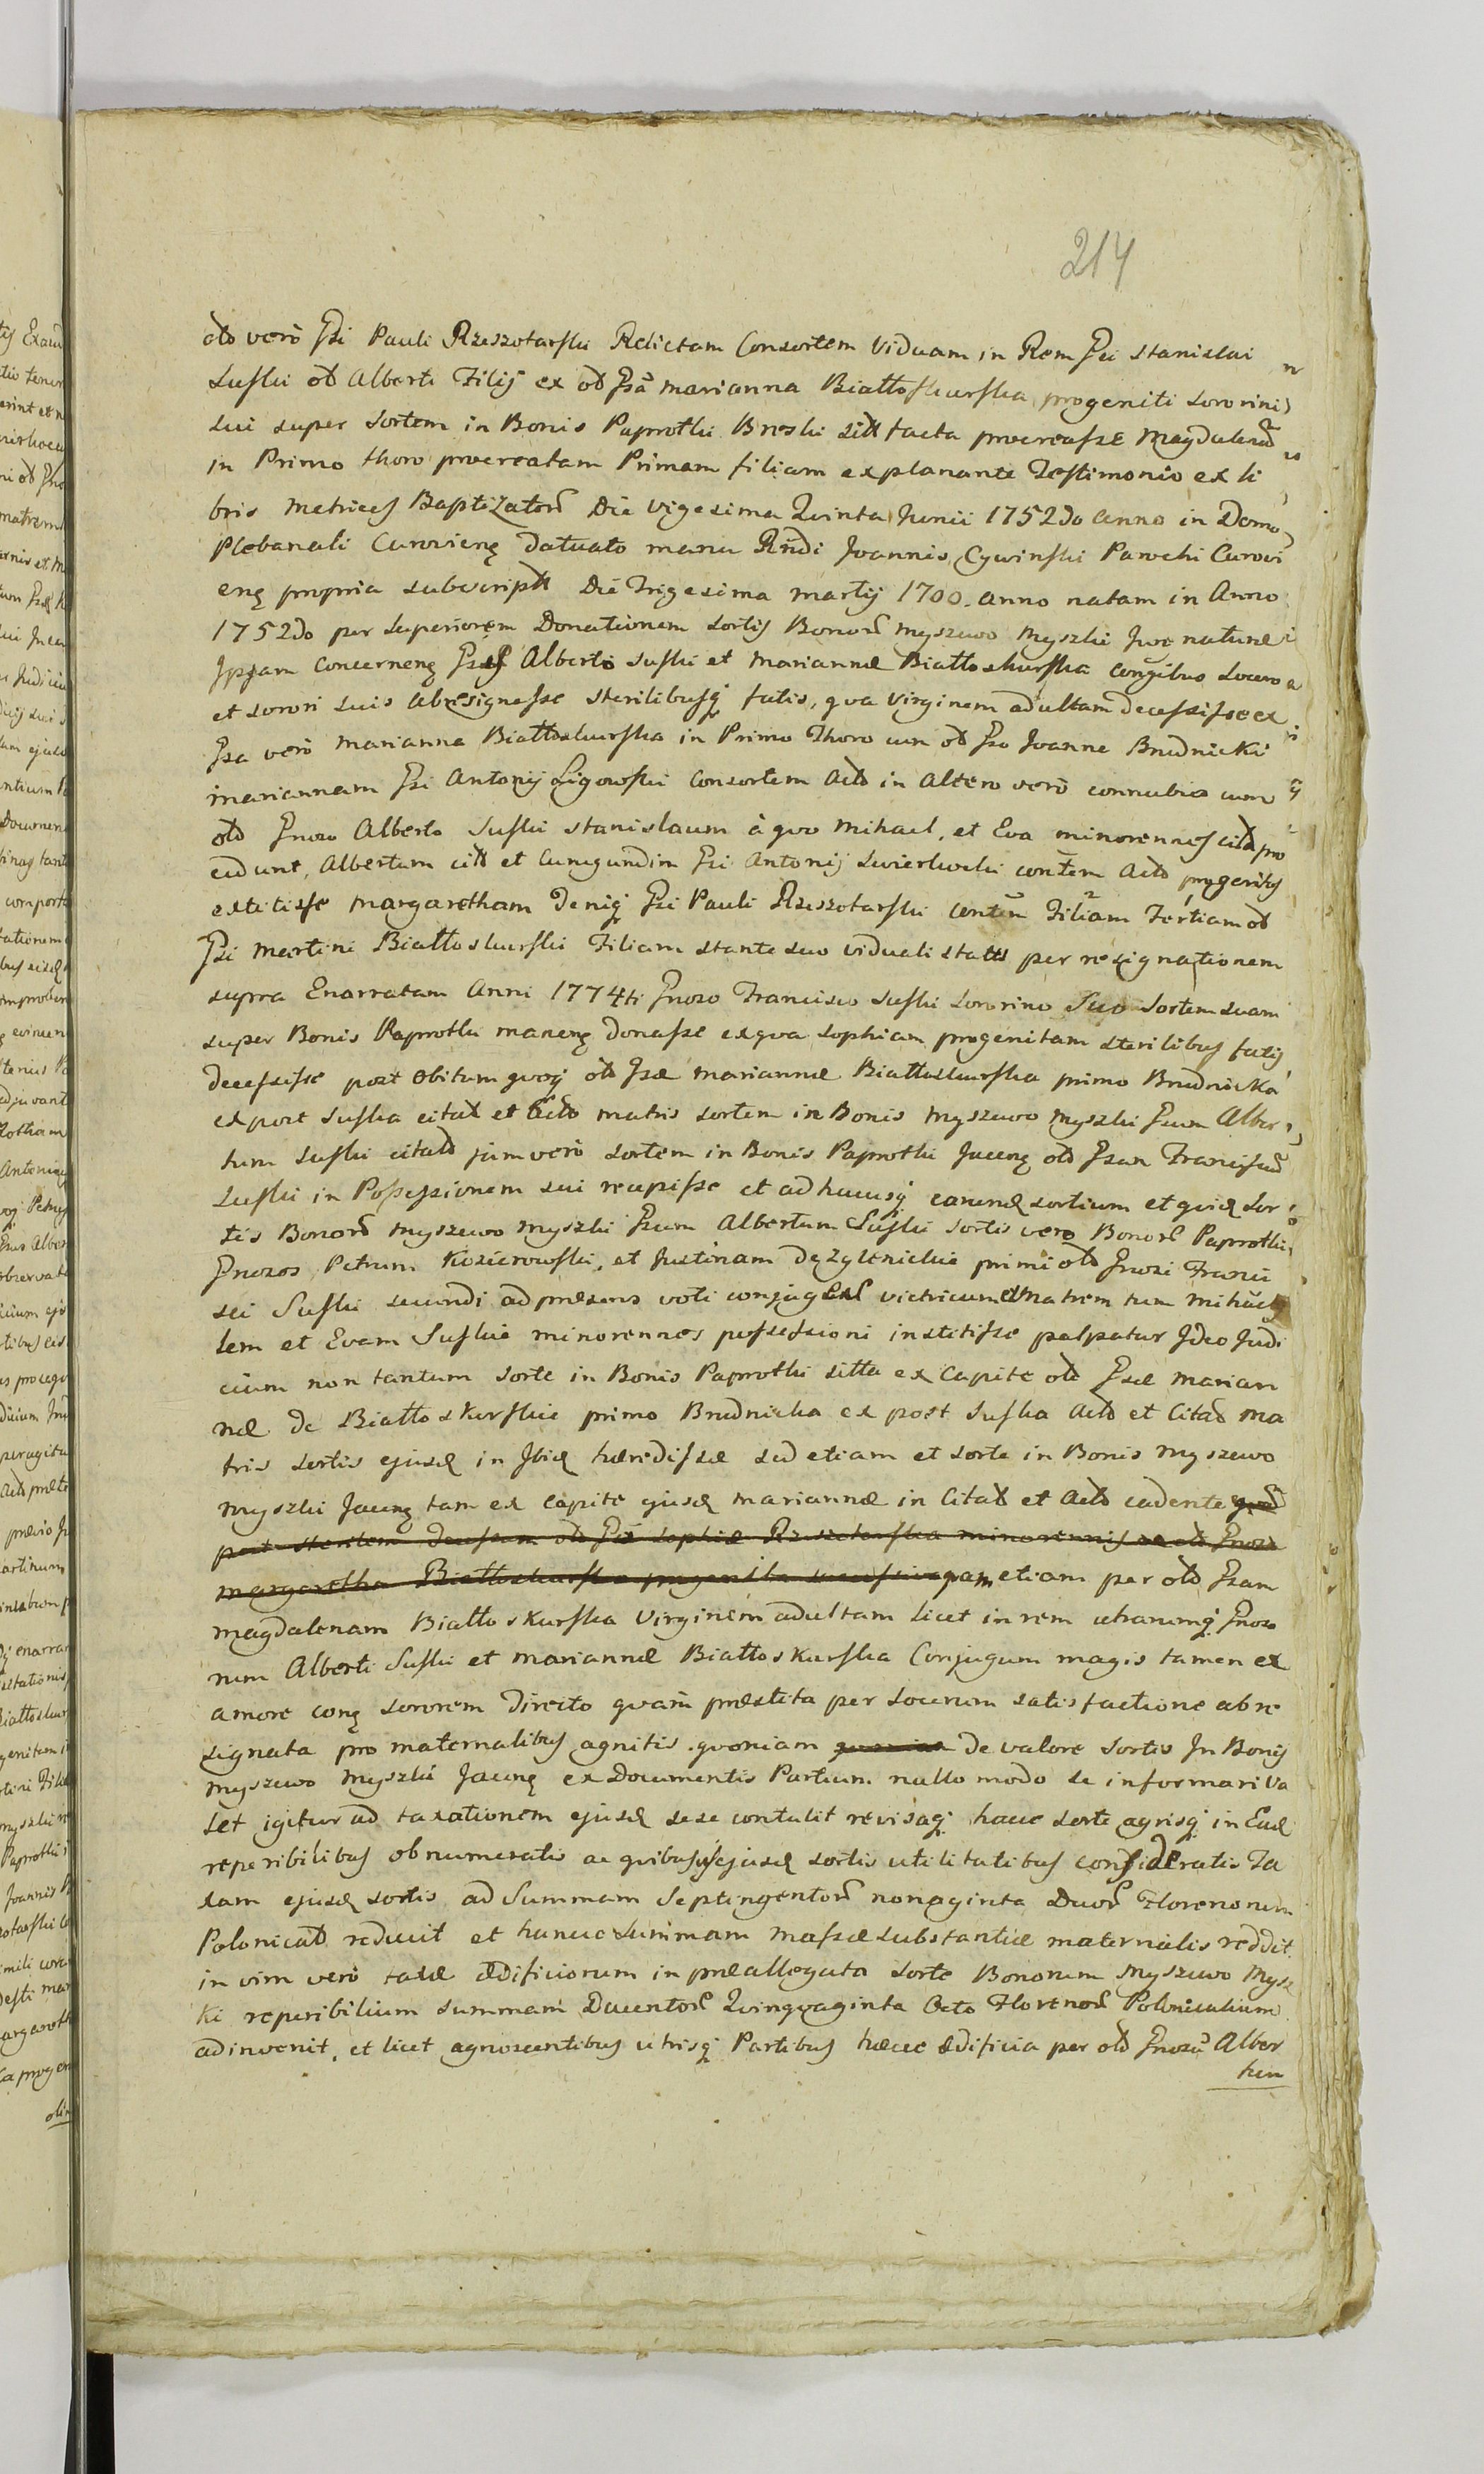 214
olt vero Gsi Pauli Rzeszotarski Relictam Consortem Viduam in Rem Gsi Stanislai
Suski olt Alberti Filij ex olt Gsa Marianna Białłoskurska progeniti sororini
sui super sortem in Bonis Paprotki Breski sitt facta procreasse Magdalenam
in Primo thoro procreatam Primam filiam explanante Testimonio ex li
bris Metrices Baptizator Die vigesima Quinta Junii 1752do anno in Domo
Plebanali Curovien datuato manu Rndi Joannis Cywinski Parochi Curovi
en propria subscript Die Trigesima Martij 1700. anno natam in Anno
1752do per superiorem Donationem sortis Bonor Myszewo Myszki Jure naturae
Ipsam concernen Gsis Alberto Suski et Mariannae Białłoskurska congibus socero
et sorori suis abresignasse sterilibusq fatis, qva virginem adultam decessisse ex
Gsa vero Marianna Białłoskurska in Primo Thoro cum olt Gso Joanne Brudnicki
Mariannam Gsi Antonij Ligowski Consortem Actt in Altero vero connubio cum
olt Gnoso Alberto Suski Stanislaum à qvo Mihael, et Eva minorennes citt pro
cedunt, Albertum citt et Cunegundim Gsi Antonij Swierlwski contem Actt progenitos
extitisse Margaretham deniq Gsi Pauli Rzeszotarski contem Filiam Tertiam olt
Gsi Martini Białłoskurski Filiam stante suo viduali statu per resignationem
supra Enarratam Anni 1774ti Gnoso Francisco Suski sororino suo sortem suam
super Bonis Paprotki manen donasse ex qva Sophiam progenitam sterilibus fatis
decessisse post obitum qvoq olt Gsae Mariannae Białłoskurska primo Brudnicka
ex post Suska citat et Actt matris sortem in Bonis Myszewo Myszki Gsum Alber
tum Suski citatt jam vero sortem in Bonis Paprotki Jacen olt Gsum Francisum
Suski in Possessionem sui recepisse et adhucusq earund sortium et qvid sor
tis Bonor Myszewo Myszki Gsum Albertum Suski sortis vero Bonor Paprotki
Gnosos Petrum Kosierowski, et Justinam de Zglenickie primi olt Gnosi Franci
sci Suski secundi ad praesens voti conjugem victricum et Matrem tum Mihae
lem et Evam Suskie minorennes possessioni institisse palpatur Ideo Judi
cium non tantum sorte in Bonis Paprotki sitta ex Capite olt Gsae Marian
nae de Białłoskurskie primo Brudnicka ex post Suska Actt et Citat ma
tris sortis ejusd in Ibid haeredissae sed etiam et sorte in Bonis Myszewo
Myszki Jacen tam ex capite ejusd Mariannae in Citat et Actt cadente qvod
post sterilem decessum olt Gsae Sophiae Rzeszotarska minorennis ac olt Gnosa
Margaretha Białłoskurska progenita qvam etiam per olt Gsam
Magdalenam Białłoskurska Virginem adultam licet in rem utrarumq Gnoso
rum Alberti Suski et Mariannae Białłoskurska Conjugum magis tamen ex
amore con sororem directo qvam praestita per socerum satisfactione abre
signata pro maternalibus agnitis qvoniam qvoniam de valore sortis In Bonis
Myszewo Myszki Jacen ex Documentis Partium nullo modo se informari va
let igitur ad taxationem ejusd sese contulit revisaq hacce sorte agrisq in Ead
reperibilibus obnumeratis ac qvibusvis ejusd sortis utilitatibus consideratis Ta
xam ejusd sortis ad Summam Septingentor nonaginta Duor Florenorum
Polonicatt reducit et hancce summam massae substantiae maternalis reddit
in vim vero taxae aedificiorum in praeallegata sorte Bonorum Myszewo Mysz
ki reperibilium summam Ducentor Qvinqvaginta Octo Florenor Polonicalium
adinvenit, et licet agnoscentibus utrisq Partibus haecce aedificia per olt Gnosum Alber
tum